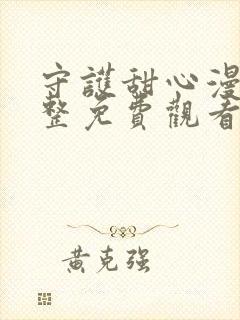 守護甜心漫
整免費觀看
黃克強